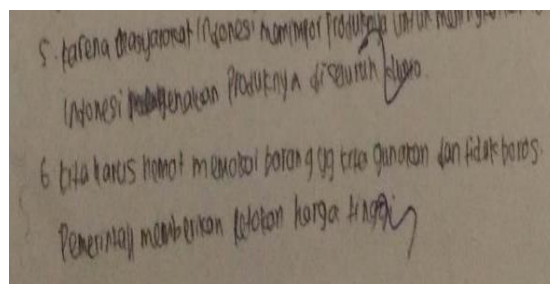 5. Karena masyarakat Indonesi mamimpor Produknya Untuk
Indonesi Produknya diseluruh
6 kita harus hemat memakai barang yg kita gunakan dan tidak boros.
Pemerintah memberikan harga tinggi